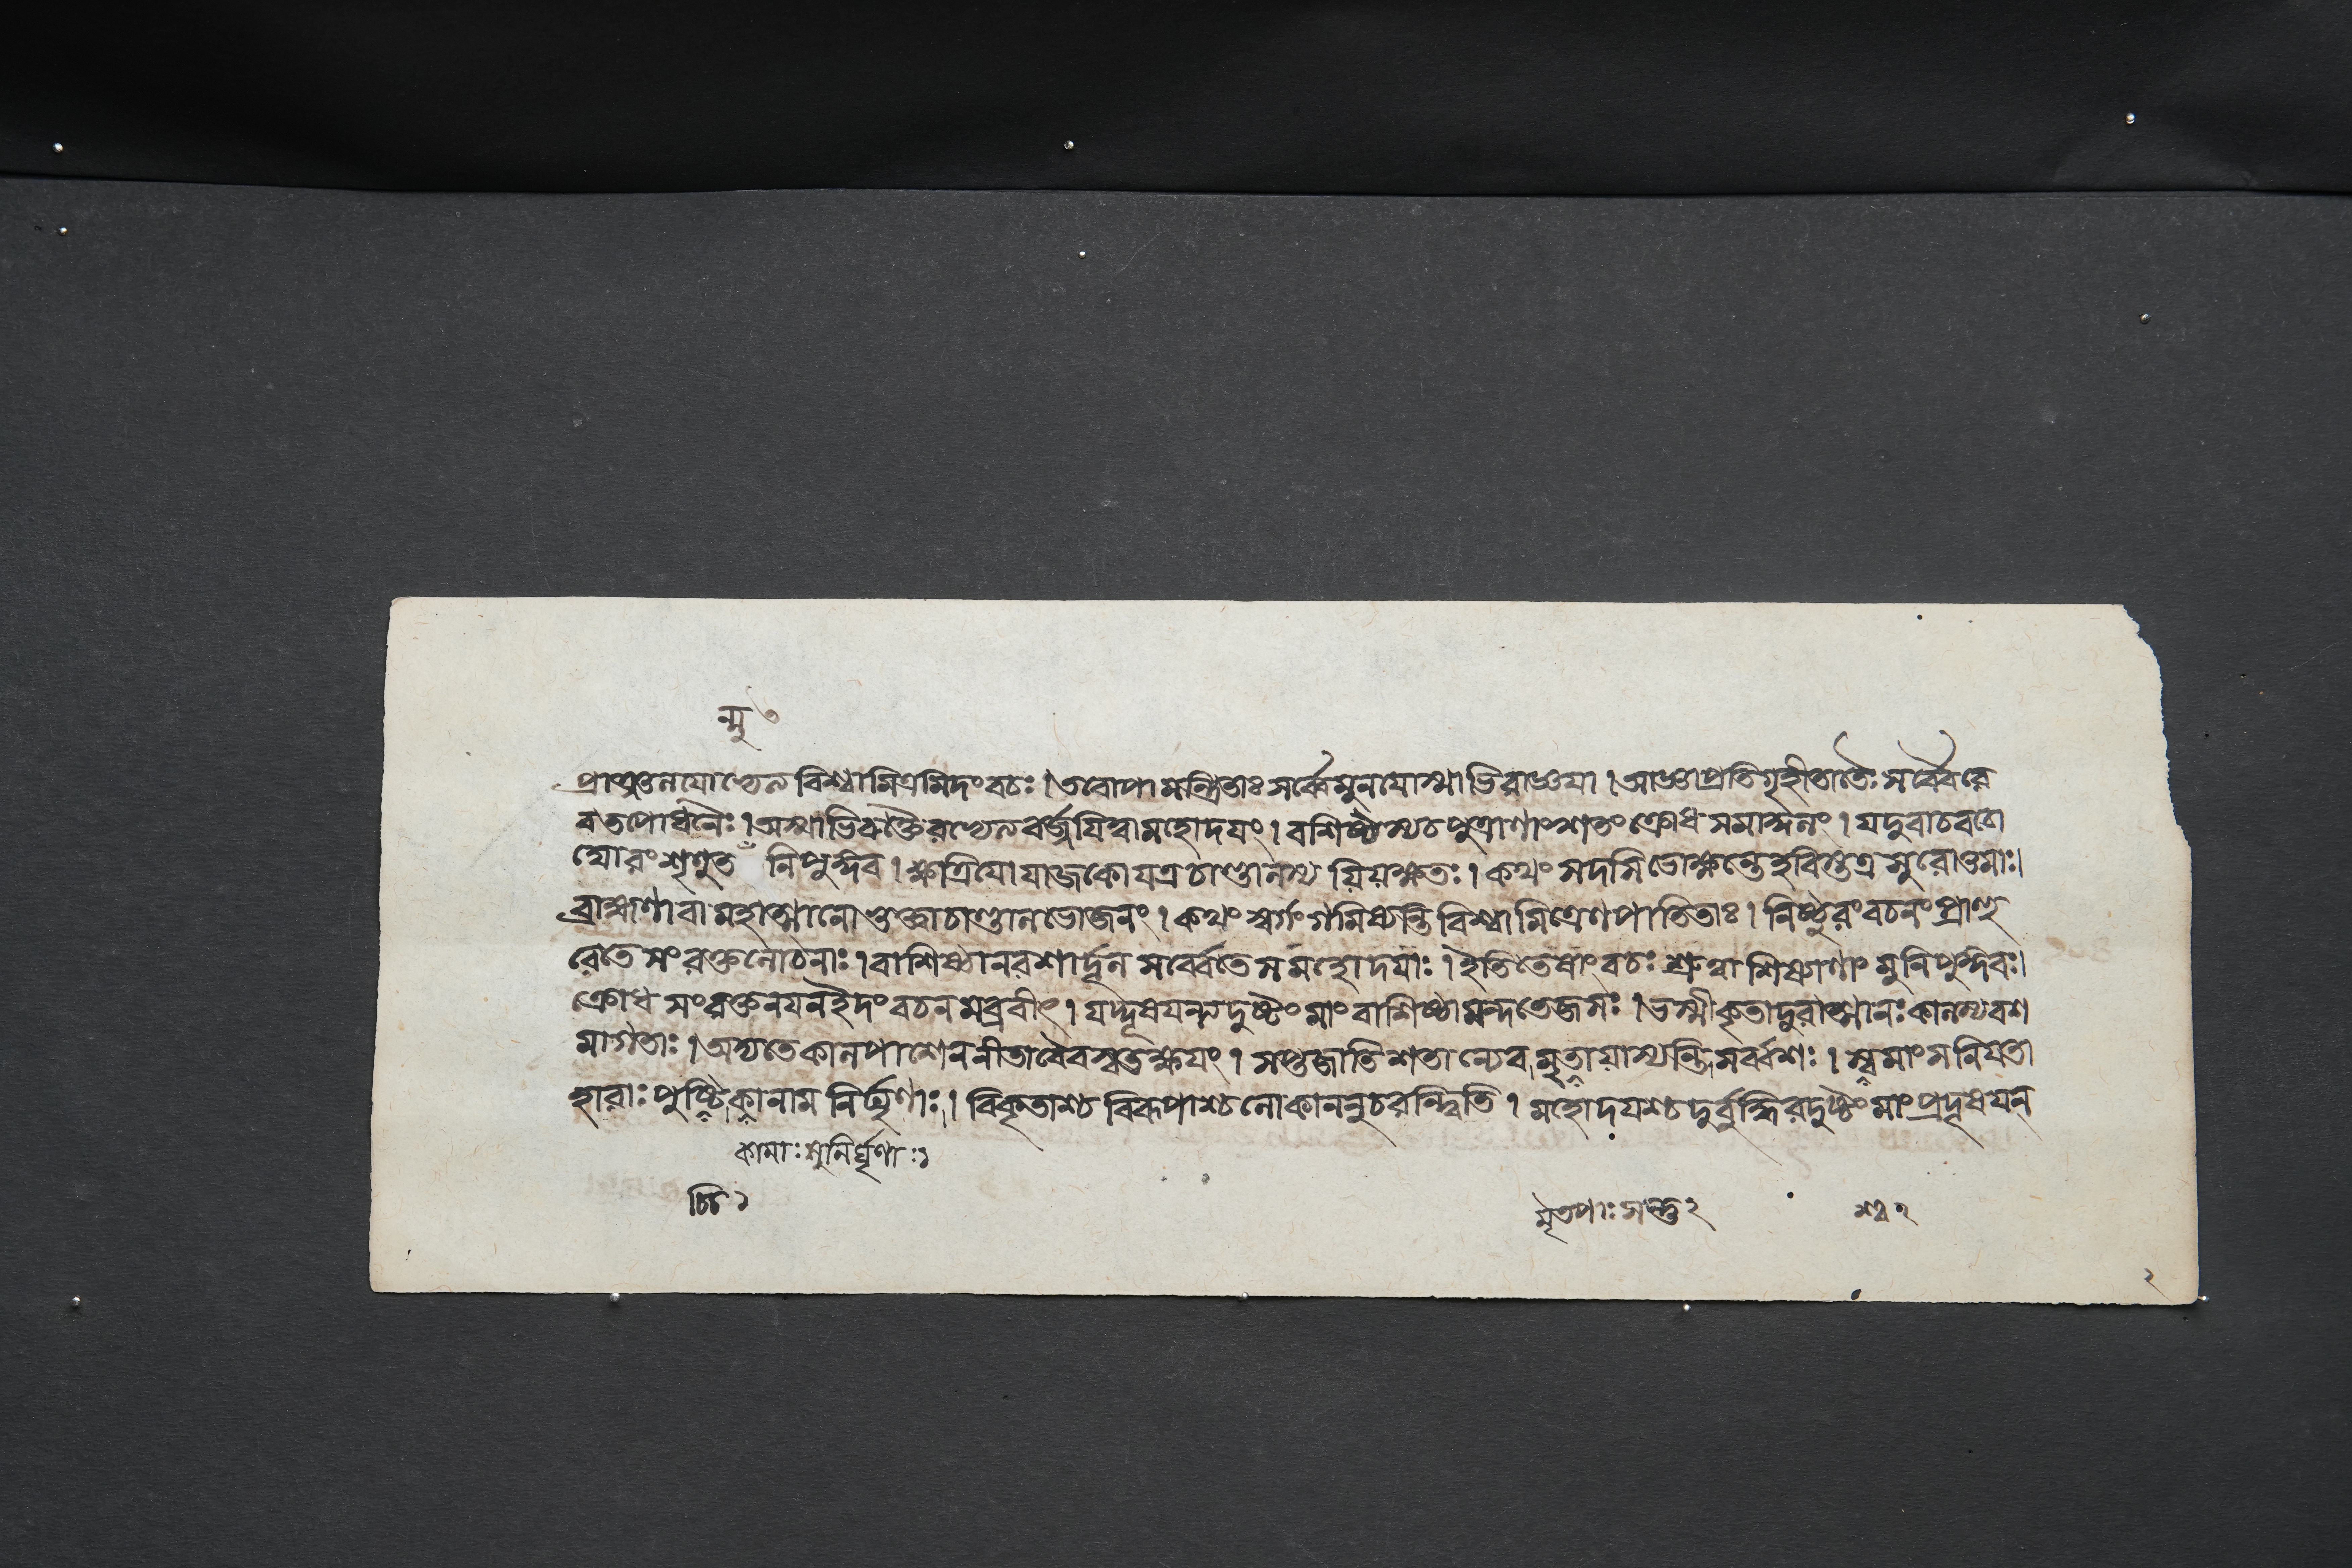 ন্মু ৩
প্রাঞ্জলযোভ্যেত্য বিশ্বামিত্রমিদংবচঃ । তবোপামন্ত্রিতাঃ সর্ব্বে মুনযোস্মাভিরাজ্ঞযা । আজ্ঞাপ্রতিগৃহীতাতৈঃ সর্ব্বৈরে
ব তপোধনৈঃ । অস্মাভিরুক্তৈরভ্যেত্য বর্জ্জযিত্বামহোদযং । বশিষ্ঠস্যচপুত্রাণাংশতংক্রোধসমাকুলং । যদুবাচবচো
ঘোরং শৃণুত নিপুঙ্গব । ক্ষত্রিযোযাজকোযত্রচাণ্ডালস্য যিযক্ষতঃ । কথং সদসিভোক্ষ্যন্তেহবিস্তত্রসুরোত্তমাঃ ।
ব্রাহ্মণাবামহাত্মানোভুক্ত্বাচাণ্ডালভোজনং । কথং স্বর্গংগমিষ্যন্তি বিশ্বামিত্রেণপাতিতাঃ । নিষ্ঠুরংবচনংপ্রাহু
রেতে সংরক্তলোচনাঃ । বাশিষ্ঠানরশার্দ্দূল সর্ব্বেতেসমহোদযাঃ । ইতিতেষাংবচঃ শ্রুত্বাশিষ্যাণাং মুনিপুঙ্গবঃ ।
ক্রোধ সংরক্তনযনইদংবচনমব্রবীৎ । যদ্দূষযন্ত্যদুষ্টংমাংবাশিষ্ঠামন্দতেজসঃ । ভস্মীকৃতাদুরাত্মানঃ কালস্যবশ
মাগতাঃ । অদ্যতেকালপাশেননীতাবৈবস্বতক্ষযং । সপ্তজাতিশতান্যেব মৃতাযাস্যন্ত্রিসর্ব্বশঃ । স্বমাংসনিযতা
হারাঃ পুষ্টিকানাম নির্ঘৃণাঃ । বিকৃতাশ্চ বিরূপাশ্চলোকাননুচরন্ত্বিতি । মহোদযশ্চদুর্ব্বুদ্ধিরদুষ্টংমাংপ্রদূষযন্
কামাঃ সুনির্ঘৃণাঃ ১
মৃতপাঃ সন্তু ২
শ্ব ২
২